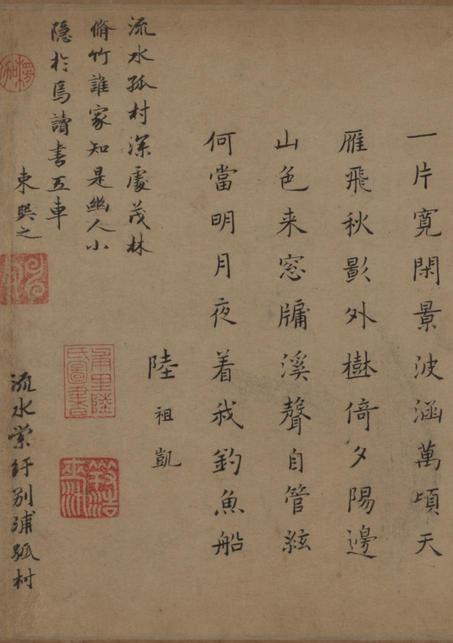 一片寬閑景波涵萬頃天
雁飛秋影外樹倚夕陽邊
山色来窓牖溪聲自管絃
何當明月夜着我釣魚船
陸祖凱
流水孤村深處茂林
脩竹誰家知是幽人小
隠於焉讀書五車
東吳之
流水縈紆別浦孤村